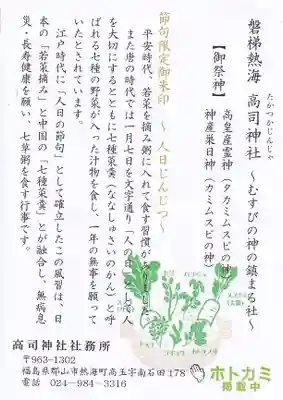 磐梯熱海 高司神社 ~むすびの神の鎮まる社~
たかつかじんじゃ
【御祭神】
高皇産霊神(タカミムスビの神)
神産巣日神(カミムスビの神)
節句限定御朱印 ~人日じんじつ~
平安時代、若菜を摘み粥に入れて食す習慣がありました
また唐の時代では一月七日を文字通り「人の日」とし人
を大切にするとともに七種菜羹(ななしゅさいのかん)と呼
ばれる七種の野菜が入った汁物を食し、一年の無事を願って
いたとされています。
江戸時代に「人日の節句」として確立したこの風習は、日
本の「若菜摘み」と中国の「七種菜羹」とが融合し、無病息
災・長寿健康を願い、七草粥を食す行事です。
高司神社社務所
〒963-1302
福島県郡山市熱海町高玉字南石田178
電話 024-984-3316
ホトカミ
掲載中